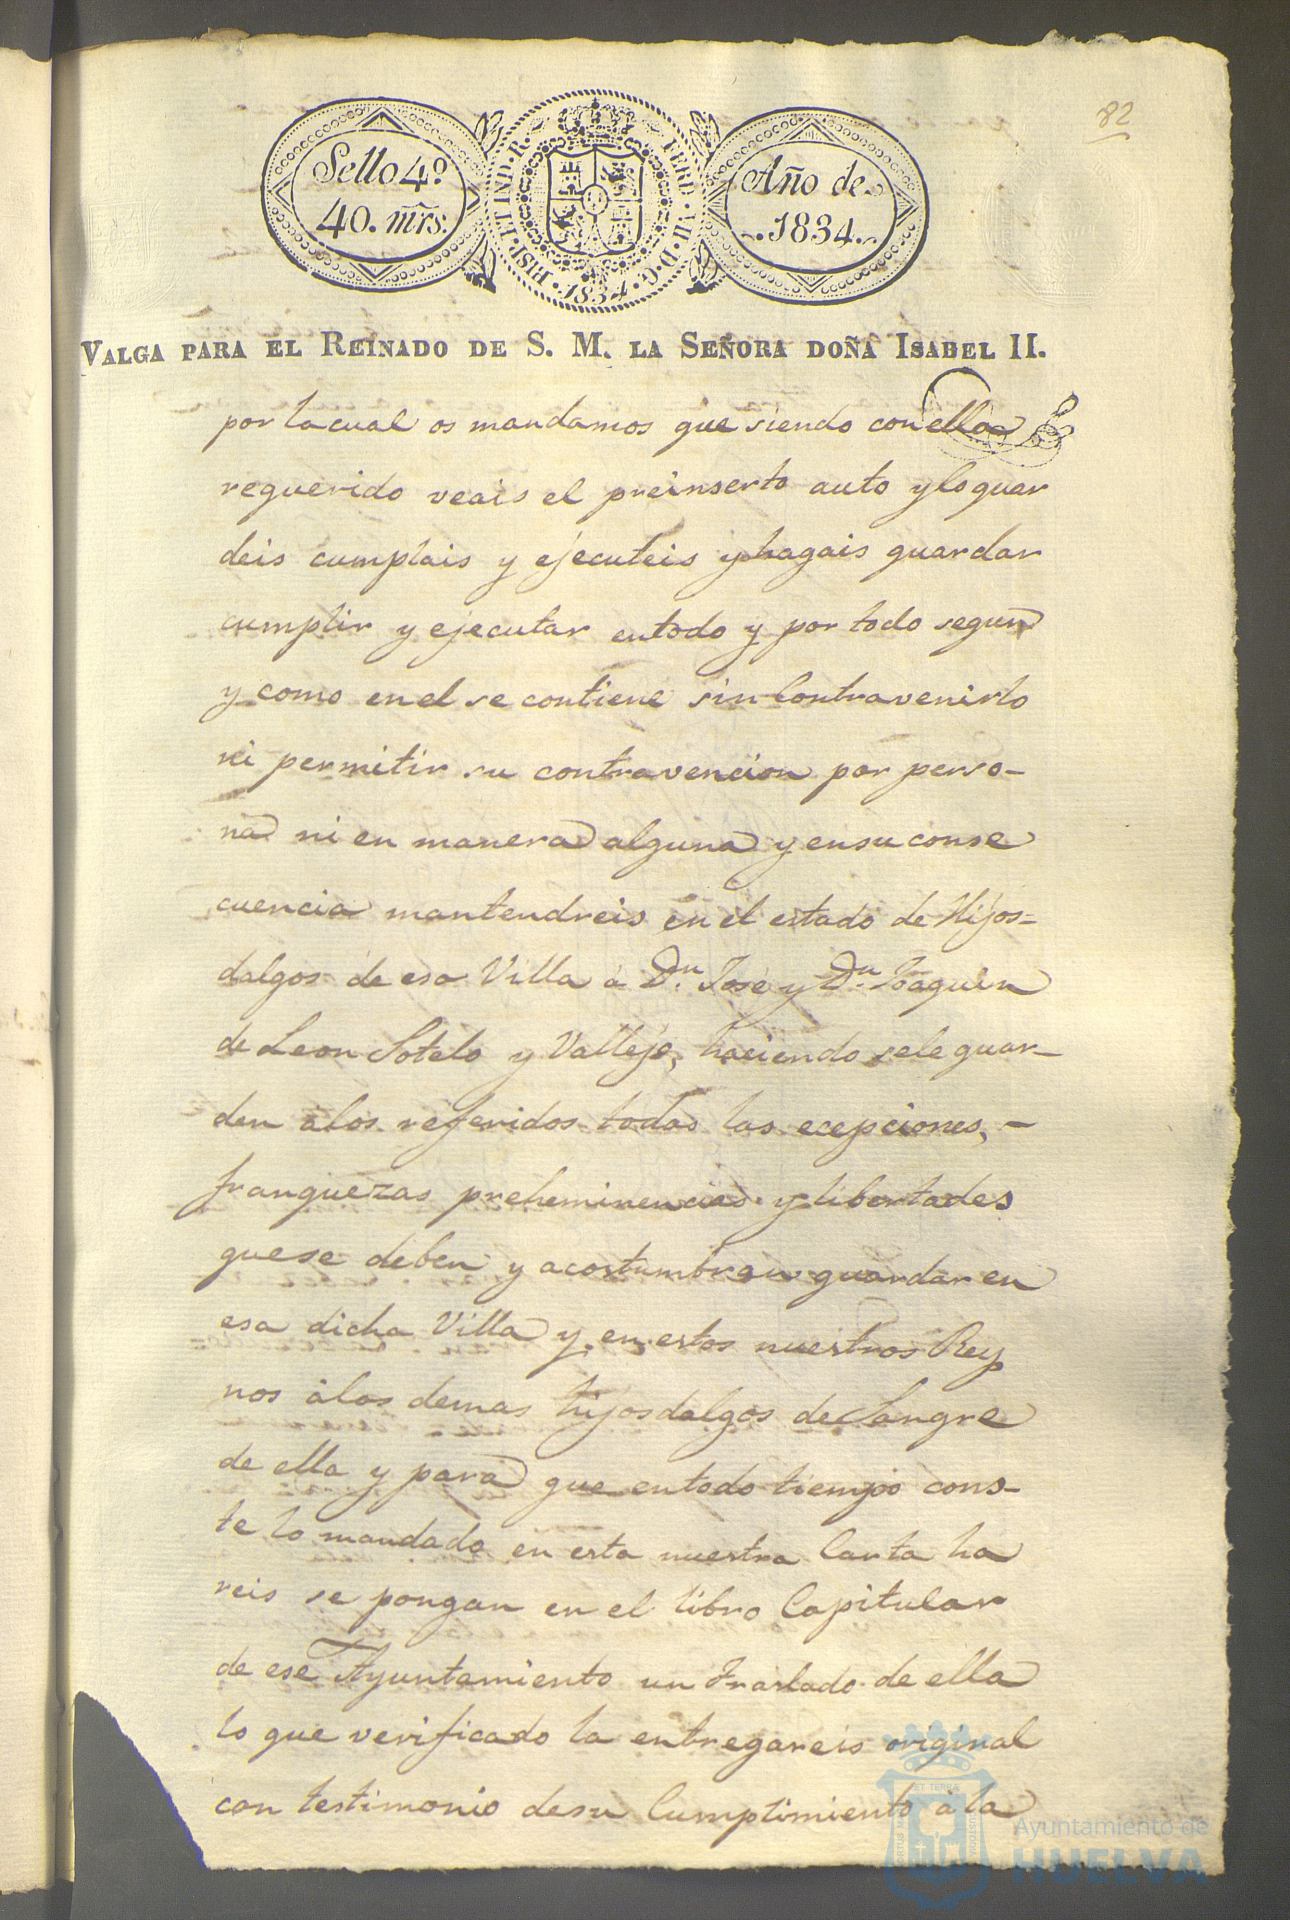 82
Sello 4º
40. mrs.
HISP. ET IND. R. FERD. VII. D. G. 1834.
Año de
1834.
VALGA PARA EL REINADO DE S. M. LA SEÑORA DOÑA ISABEL II.
por la cual os mandamos que siendo con ella
requerido veais el preinserto auto y lo guar
deis cumplais y ejecuteis y hagais guardar
cumplir y ejecutar en todo y por todo segun
y como en el se contiene sin Contravenirlo
ni permitir su contravencion por perso-
na ni en manera alguna y en su conse
cuencia mantendreis en el estado de Hijos=
dalgos de esa Villa á Dn. José y Dn. Joaquin
de Leon Sotelo y Vallejo, haciendo sele guar-
den alos referidos todas las ecepciones, -
franquezas preheminencias y libertades
que se deben y acostumbran guardar en
esa dicha Villa y en estos nuestros Rey
nos álos demas hijosdalgos de Sangre
de ella y para que en todo tiempo cons-
te lo mandado en esta nuestra Carta ha
reis se pongan en el libro Capitular
de ese Ayuntamiento un traslado de ella
lo que verificado la entregareis original
con testimonio de su Cumplimiento á la
Ayuntamiento de
HUELVA